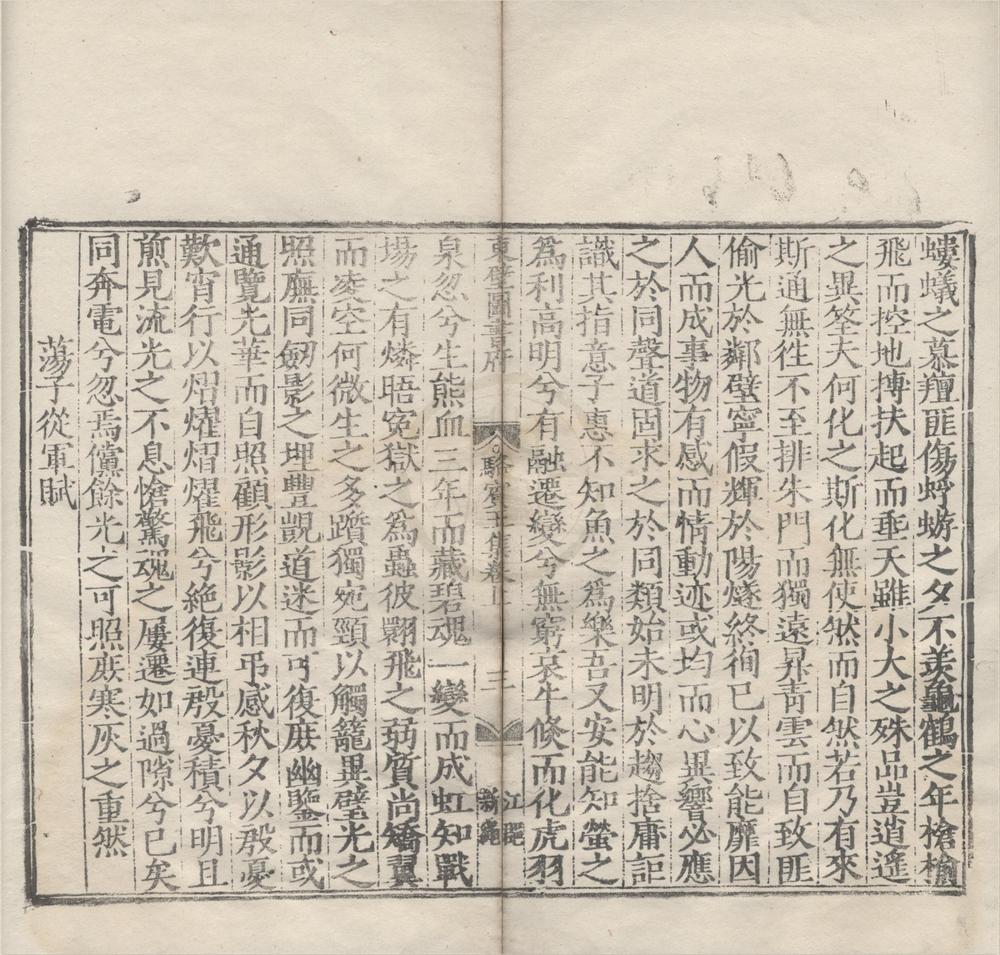 螻蟻之慕羶匪傷蜉蝣之夕不羨龜鶴之年槍榆
飛而控地搏扶起而垂天雖小大之殊品豈逍遙
之異筌夫何化之斯化無使然而自然若乃有來
斯通無徃不至排朱門而獨遠昇青雲而自致匪
偷光於鄰壁寧假輝於陽燧終徇已以致能靡因
人而成事物有感而情動迹或均而心異響必應
之於同聲道固求之於同類始未明於趨捨庸詎
識其指意子惠不知魚之為樂吾又安能知螢之
爲利高明兮有融遷變兮無窮哀牛倐而化虎羽
東壁圖書府
駱賓王集卷上
三
江
新
泉忽兮生熊血三年而藏碧魂一變而成虹知戰
場之有燐晤寃獄之爲蟲彼翾飛之弱質尚矯翼
而凌空何微生之多躓獨宛頸以觸籠異壁光之
照廡同劒影之埋豐覬道迷而可復庶幽鑒而或
通覽光華而自照顧形影以相弔感秋夕以殷憂
歎宵行以熠燿熠燿飛兮絶復連殷憂積兮明且
煎見流光之不息愴驚魂之屢遷如過隙兮已矣
同奔電兮忽焉儻餘光之可照庶寒灰之重然
蕩子從軍賦